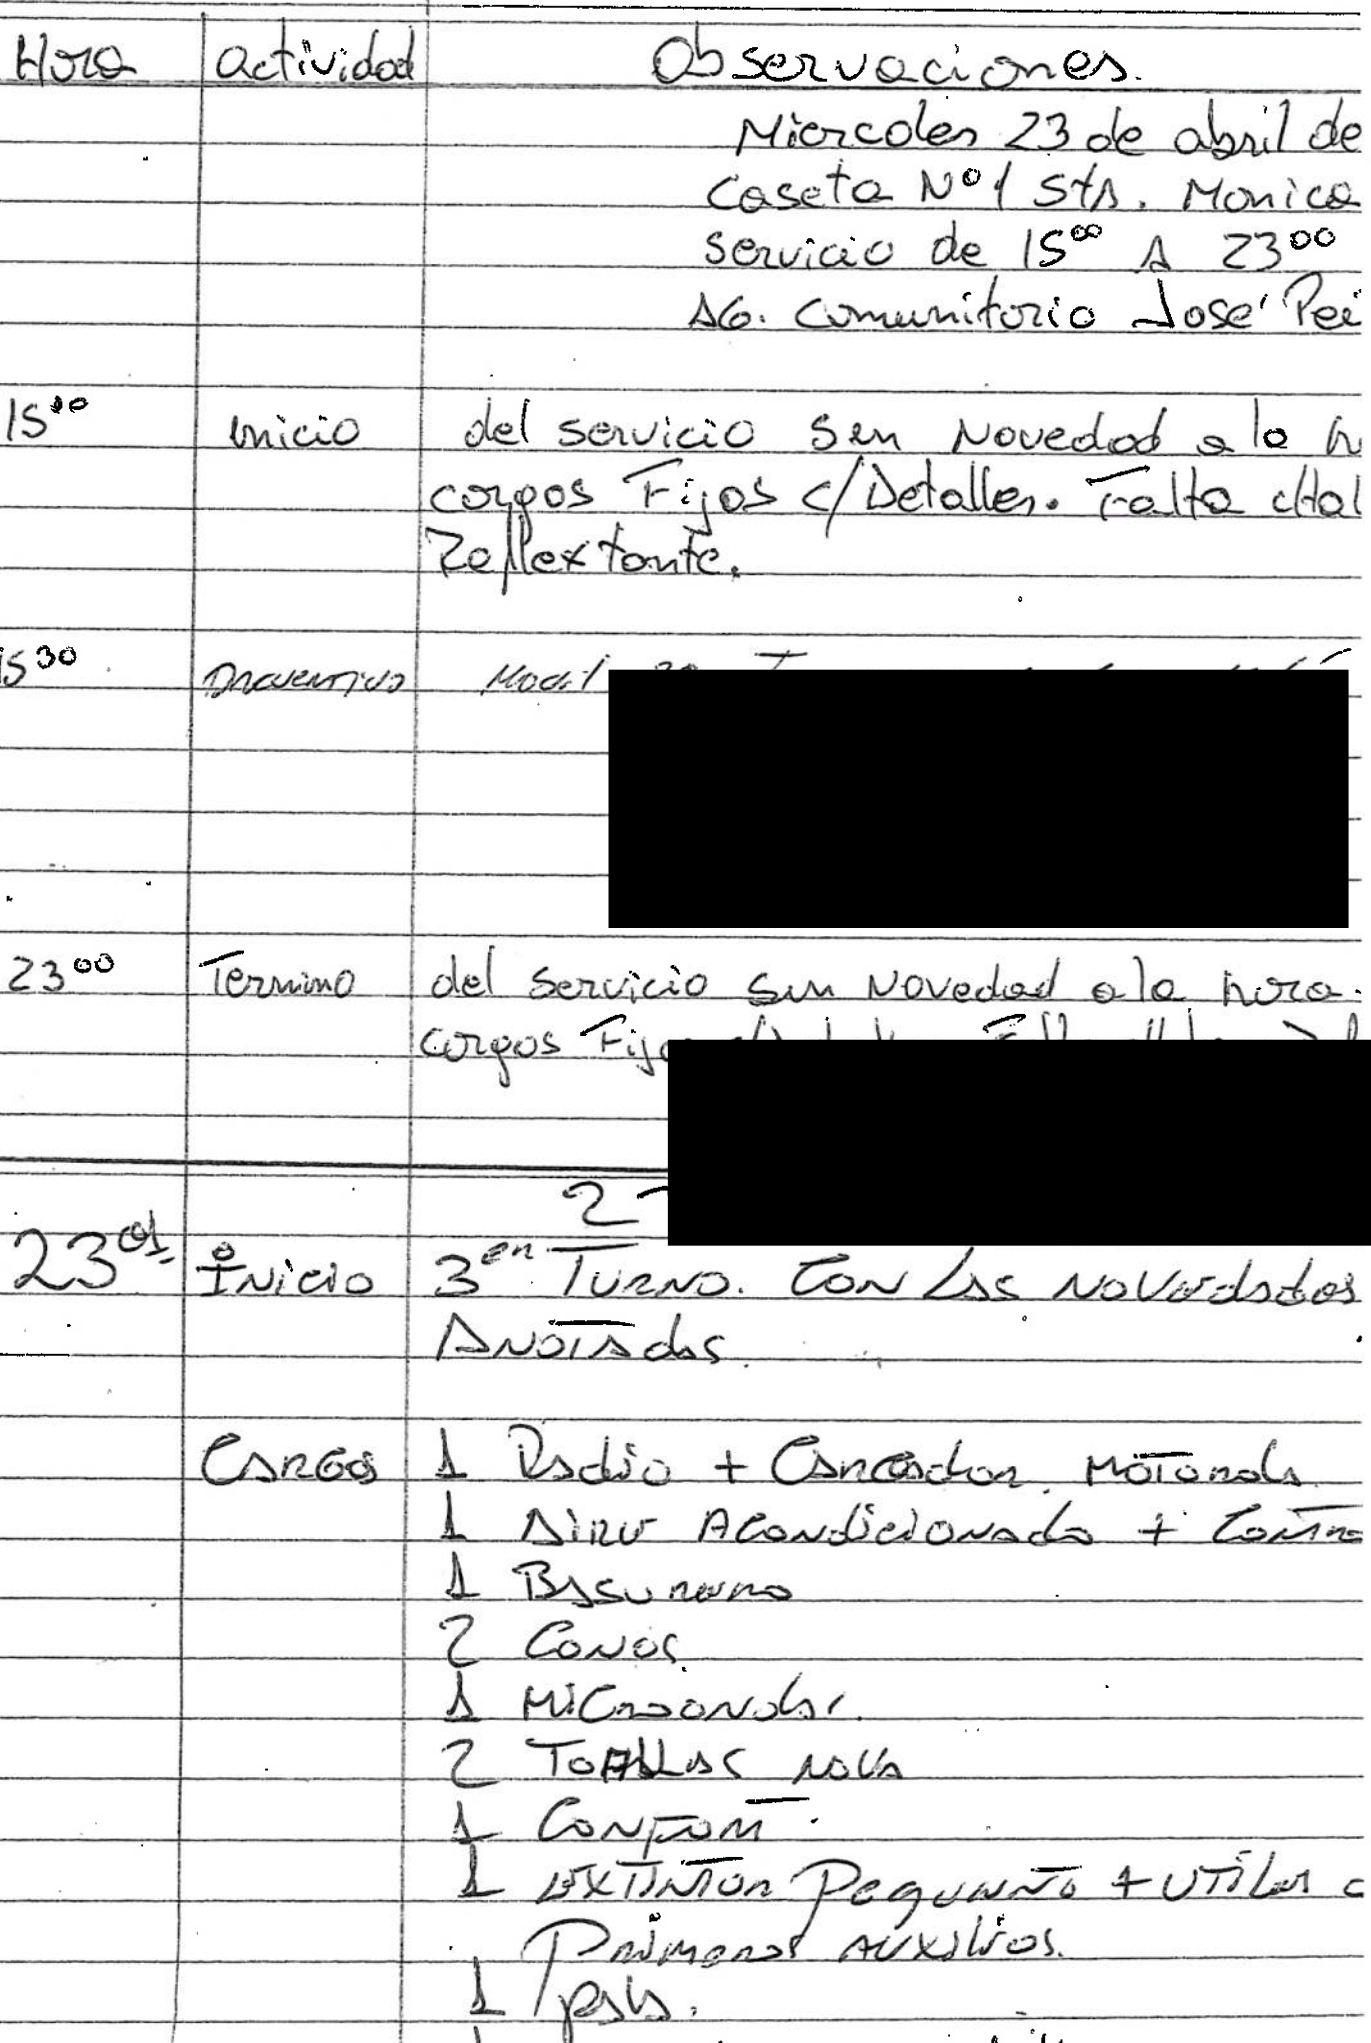 Hora actividad Observaciones.
Miercoles 23 de abril de
Caseta Nº1 Sta. Monica
Servicio de 15⁰⁰ A 23⁰⁰
AG. Comunitorio José
15⁰⁰ inicio del servicio sin Novedad a la
cargos Fijos c/Detalles. Falta
Reflextante.
15³⁰ Preventivo Movil
23⁰⁰ Termino del servicio sin Novedad a la hora.
cargos
23 Inicio 3er Turno. Con Las Novedades
Anotadas
Cargos 1 Radio + Cargador Motorola
1 Aire Acondicionado +
1 Basurero
2 Conos
1 Microondas.
2 Toallas nova
1 Confort.
1 Extintor Pequeño + utiles
Primeros Auxilios.
1 pala.